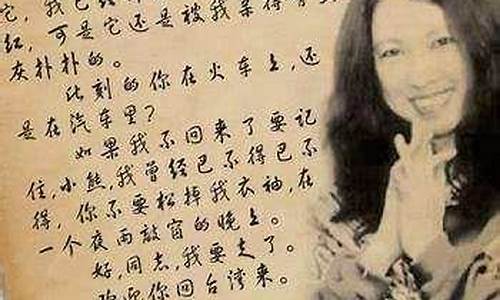 它,我已经
红,可是它还是被我弄得
灰扑扑的。
此刻的你在火车上,还
是在汽车里?
如果我不回来了要记
住,小熊,我曾经已不得已不
得,你不要松掉我衣袖,在
一个夜雨敲窗的晚上。
好,同志,我要走了。
欢迎你回台湾来。